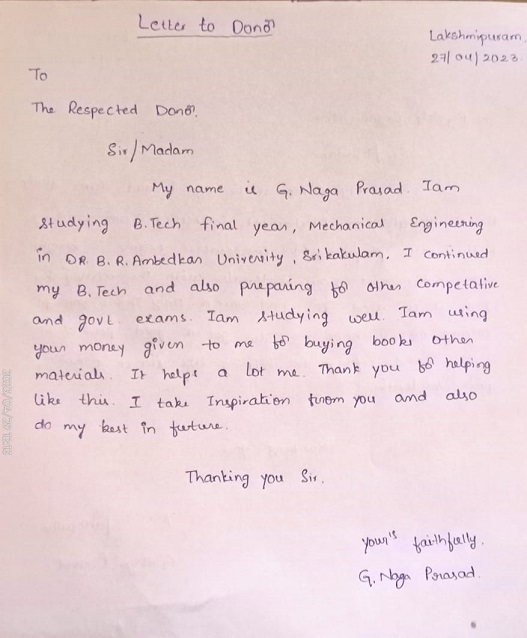 Letter to Donor
Lakshmipuram
27/04/2023.
To
The Respected Donor.
Sir/Madam
My name is G. Naga Prasad. Iam
studying B.Tech final year, Mechanical Engineering
in DR. B. R. Ambedkar University, Srikakulam. I continued
my B.Tech and also preparing for other competative
and govt. exams. Iam studying well. Iam using
your money given to me for buying books other
materials. It helps a lot me. Thank you for helping
like this. I take Inspiration from you and also
do my best in furture.
Thanking you Sir.
your's faithfully.
G. Naga Prasad.